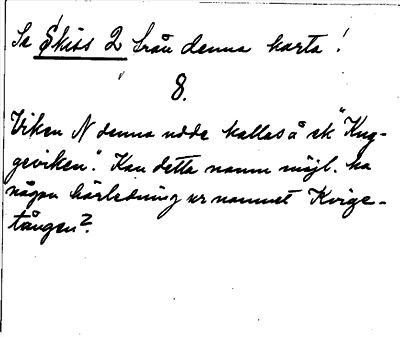 Se Skiss 2 från denna karta!
8.
Viken N denna udde kallas å ek "Kug-
geviken". Kan detta namn möjl. ha
någon härledning ur namnet Kvige-
tången?